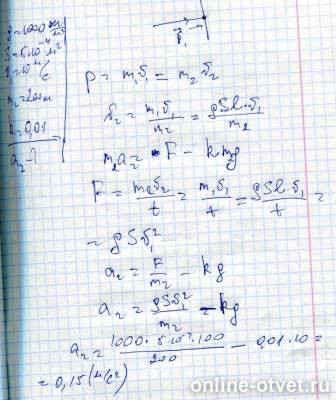 ρ=1000 кг/м³
S=5·10⁻⁴ м²
υ₁=10 м/с
m₂=200 кг
k=0,01
a₂-?
p = m₁υ₁ = m₂υ₂
υ₂ = m₁υ₁/m₂ = ρSl·υ₁/m₂
m₂a₂ = F - km₂g
F = m₂υ₂/t = m₁υ₁/t = ρSl·υ₁/t =
= ρSυ₁²
a₂ = F/m₂ - kg
a₂ = ρSυ₁²/m₂ - kg
a₂ = 1000·5·10⁻⁴·100/200 - 0,01·10 =
= 0,15 (м/с²)
online-otvet.ru